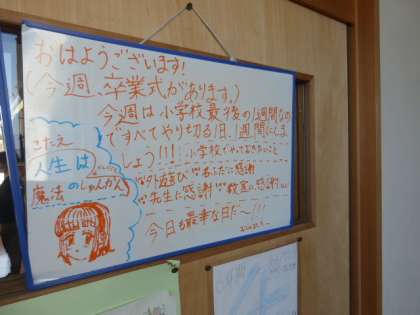 おはようございます!
(今週、卒業式があります。)
今週は小学校最後の1週間なの
ですべてやり切る1日、1週間にしま
しょう!!! 小学校でやっておきたいこと
外遊び
に感謝
先生に感謝 教室に感謝
今日も最幸な日だ〜!!!
こたえ
人生は
魔法の